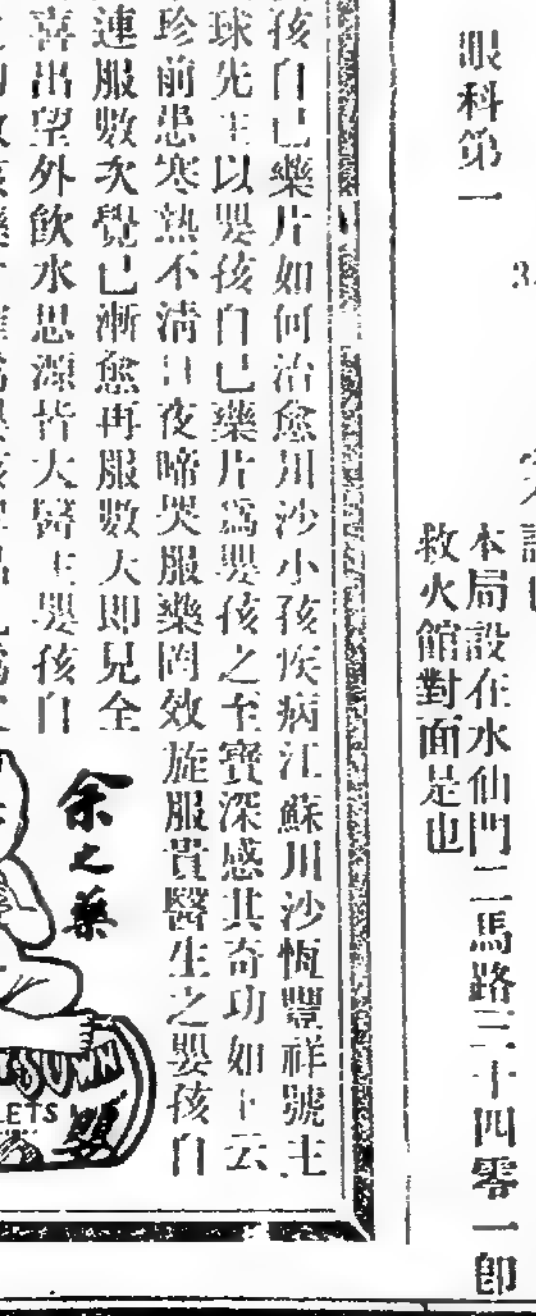 眼科第一
本局設在水仙門二馬路三十四零一即
救火館對面是也
孩自己藥片如何治愈川沙小孩疾病江蘇川沙恆豐祥號主
球先生以嬰孩自己藥片為嬰孩之至寶深感其奇功如下云
珍前患寒熱不清日夜啼哭服藥罔效旋服貴醫生之嬰孩自
連服數次覺已漸愈再服數天即見全
喜出望外飲水思源皆大醫生嬰孩自
余之藥
OWN
LETS
嬰